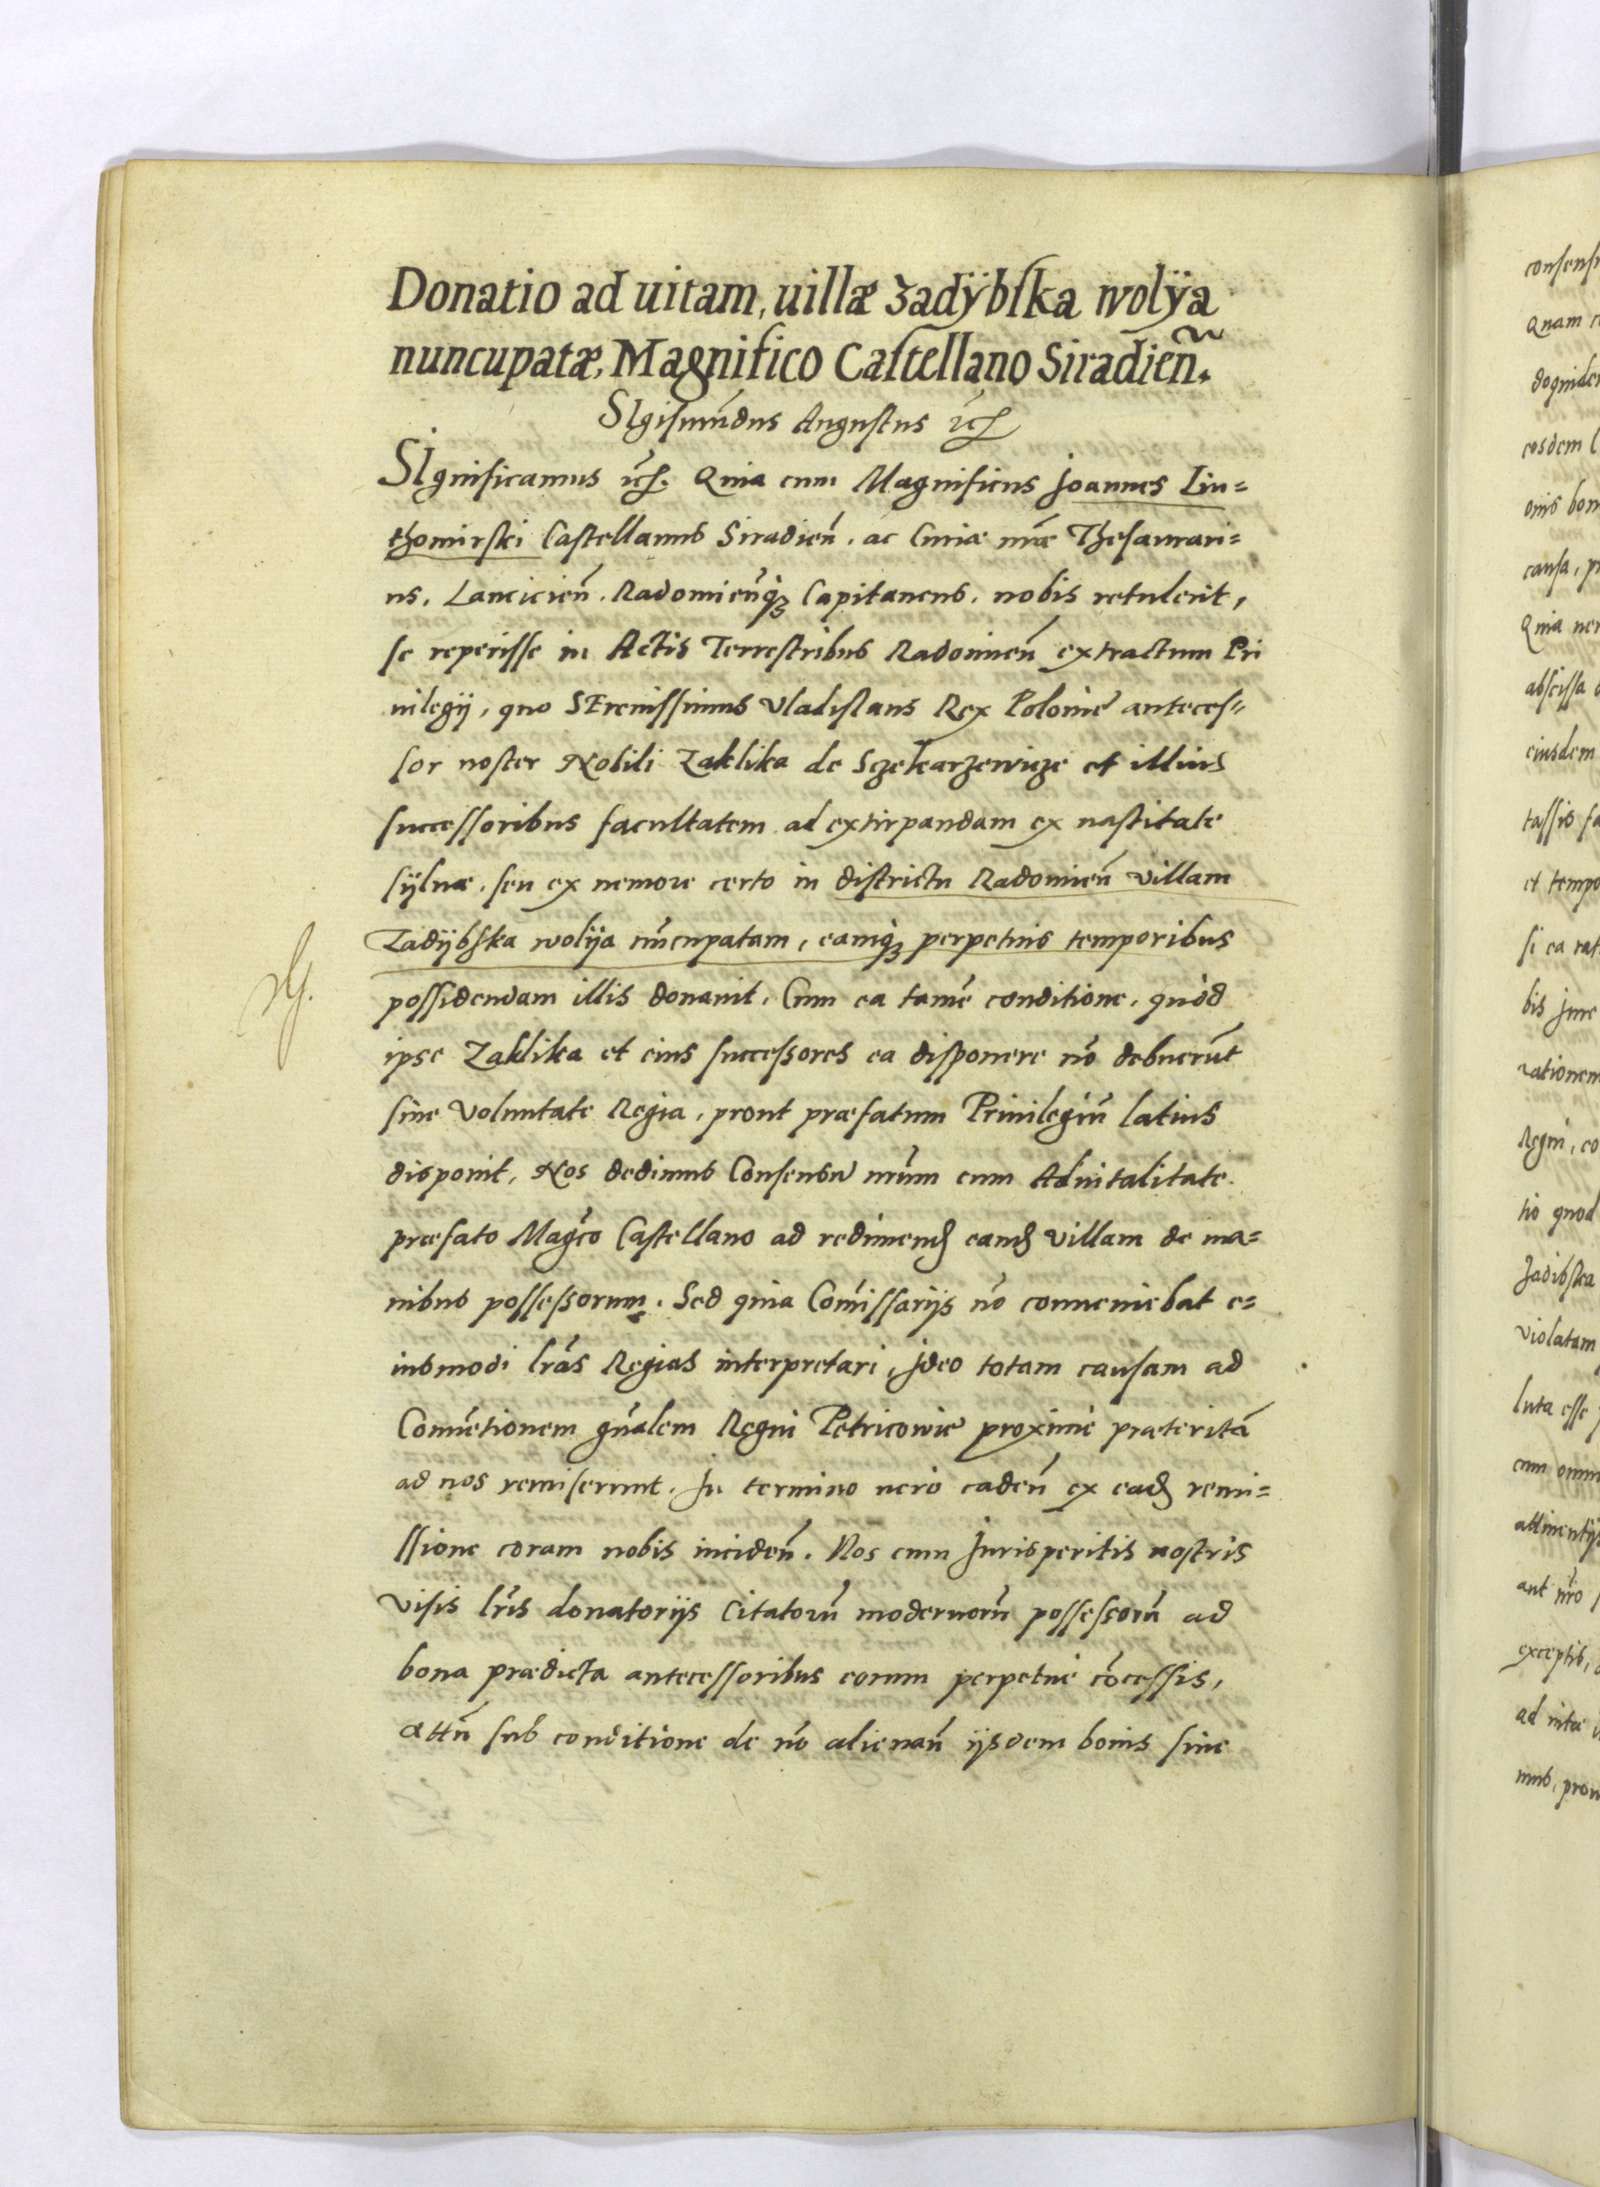 Donatio ad uitam, uillæ Zadÿbska wolÿa
nuncupatæ, Magnifico Castellano Siradien̄.
SIgismūdus Augustus
SIgnificamus Quia cum Magnificus Joannes Liu=
thomirski Castellanus Siradien̄. ac Curiæ nr̄æ Thesaurari=
us, Lancicien̄. Radomien̄q3 Capitaneus. nobis retulerit,
se reperisse in Actis Terrestribus Radomien̄ extractum Pri
uilegij, quo SErenissimus Vladislaus Rex Polonie anteces=
sor noster Nobili Zaklika de Sczekarzewicze et illius
successoribus facultatem ad extirpandam ex uastitate
sÿluæ. seu ex nemore certo in districtu Radomien̄ Villam
Zadÿbska wolÿa nūcupatam, eamq3 perpetuis temporibus
possidendam illis donauit. Cum ea tamē conditione, quòd
ipse Zaklika et eius successores ea disponere nō debuerūt
sine Voluntate Regia, prout præfatum Priuilegiū latius
disponit, Nos dedimus Consensū nr̄um cum Aduitalitate
præfato Magc̄o Castellano ad redimend eand Villam de ma=
nibus possessorum. Sed quia Com̄issarijs nō conueniebat e=
iusmodi lr̄as Regias interpretari, Jdeo totam causam ad
Conuētionem gn̄alem Regni Petricouie proxime præteritā
ad nos remiserunt. In termino uero caden̄ ex ead remi=
ssione coram nobis inciden̄. Nos cum Jurisperitis nostris
Visis lr̄is donatorijs Citatorū modernorū possessorū ad
bona prædicta antecessoribus eorum perpetue cōcessis,
attn̄ sub conditione de nō alienan̄ ijsdem bonis sine